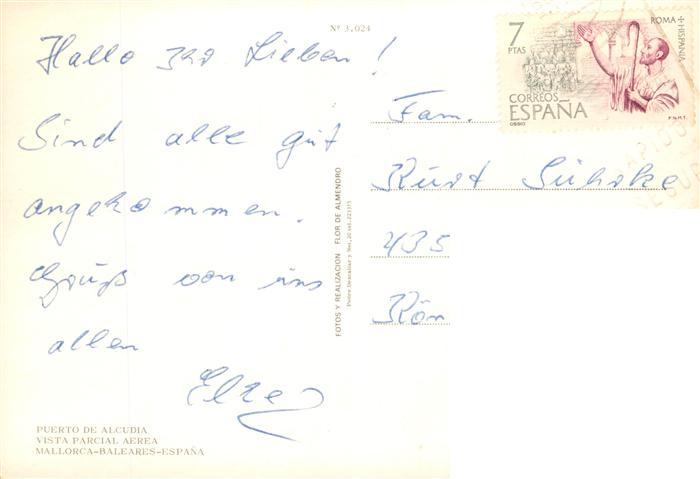 Nº 3.024
Hallo Ihr Lieben!
Sind alle gut
angekommen.
Gruß von uns
allen
PUERTO DE ALCUDIA
VISTA PARCIAL AEREA
MALLORCA-BALEARES-ESPAÑA
FOTOS Y REALIZACION FLOR DE ALMENDRO
7
PTAS
ROMA + HISPANIA
CORREOS
ESPAÑA
F.N.M.T.
Fam.
Kurt
435